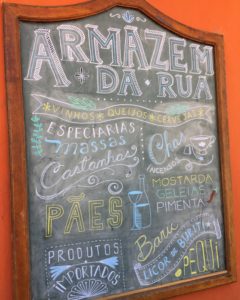 ARMAZEM
DA RUA
VINHOS QUEIJOS CERVEJAS
ESPECIARIAS
Massas
Castanhas
PÃES
PRODUTOS
IMPORTADOS
Chás
INCENSOS
MOSTARDA
GELEIAS
PIMENTA
Baru
LICOR de BURITI
PEQUI